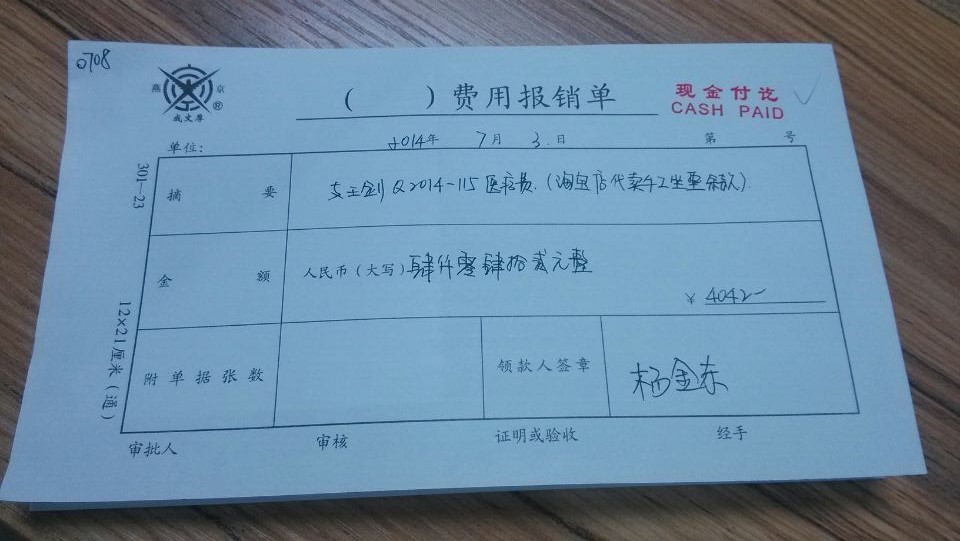 0708
燕京
®
成文厚
( ) 费用报销单
现金付讫
CASH PAID
单位: 2014年 7月 3日 第 号
301—23
12×21厘米(通)
摘要 支王剑Q2014-115医疗费.(淘宝店代卖手工坐垫余款).
金额 人民币(大写)肆仟零肆拾贰元整
¥ 4042—
附单据张数 领款人签章 杨金东
审批人 审核 证明或验收 经手